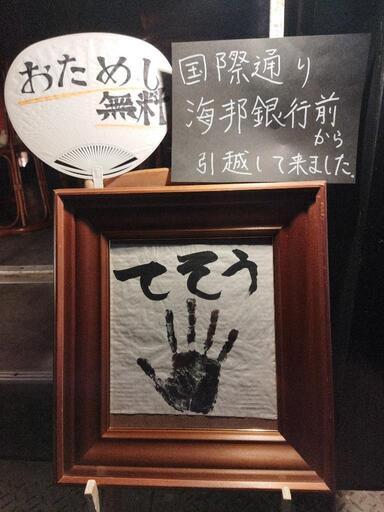 おためし
無料
国際通り
海邦銀行前
から
引越して来ました.
てそう